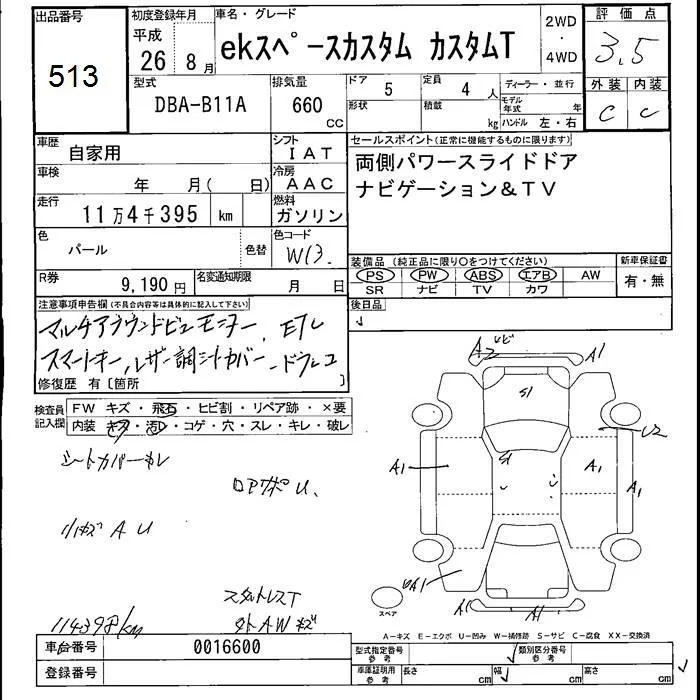 出品番号
513
初度登録年月
平成
26 8月
車名・グレード
ekスペースカスタム カスタムT
2WD
・
4WD
評価点
3.5
外装 内装
C C
型式
DBA-B11A
排気量
660
CC
ドア 5
形状
定員 4 人
積載 kg
ディーラー・並行
モデル年式 年
ハンドル 左・右
車歴
自家用
シフト
IAT
車検
年 月( 日)
冷房
AAC
走行
11万4千395 km
燃料
ガソリン
色
パール
色替
色コード
W13.
R券
9,190円
名変通知期限
月 日
セールスポイント(正常に機能するものに限ります)
両側パワースライドドア
ナビゲーション&TV
装備品(純正品に限り○をつけてください)
PS PW ABS エアB AW
SR ナビ TV カワ
新車保証書
有・無
後日品
注意事項申告欄(不具合内容等は具体的に記入して下さい)
マルチアラウンドビューモニター、ETC
スマートキー、レザー調シートカバー、ドラレコ
修復歴 有〔箇所 〕
検査員
記入欄
FW キズ・飛石・ヒビ割・リペア跡・×要
内装 キズ・汚レ・コゲ・穴・スレ・キレ・破レ
シートカバーキレ
ロアアポU、
リヤキズAU
スタットレスT
外AWキズ
114398km
A2
A1
S1
U2
S1
A1
A1
A1
A1
A1
A1
スペア
A-キズ E-エクボ U-凹み W-補修跡 S-サビ C-腐食 XX-交換済
車台番号
0016600
登録番号
型式指定番号
参考
類別区分番号
参考
車庫証明用
参考
長さ cm
幅 cm
高さ cm